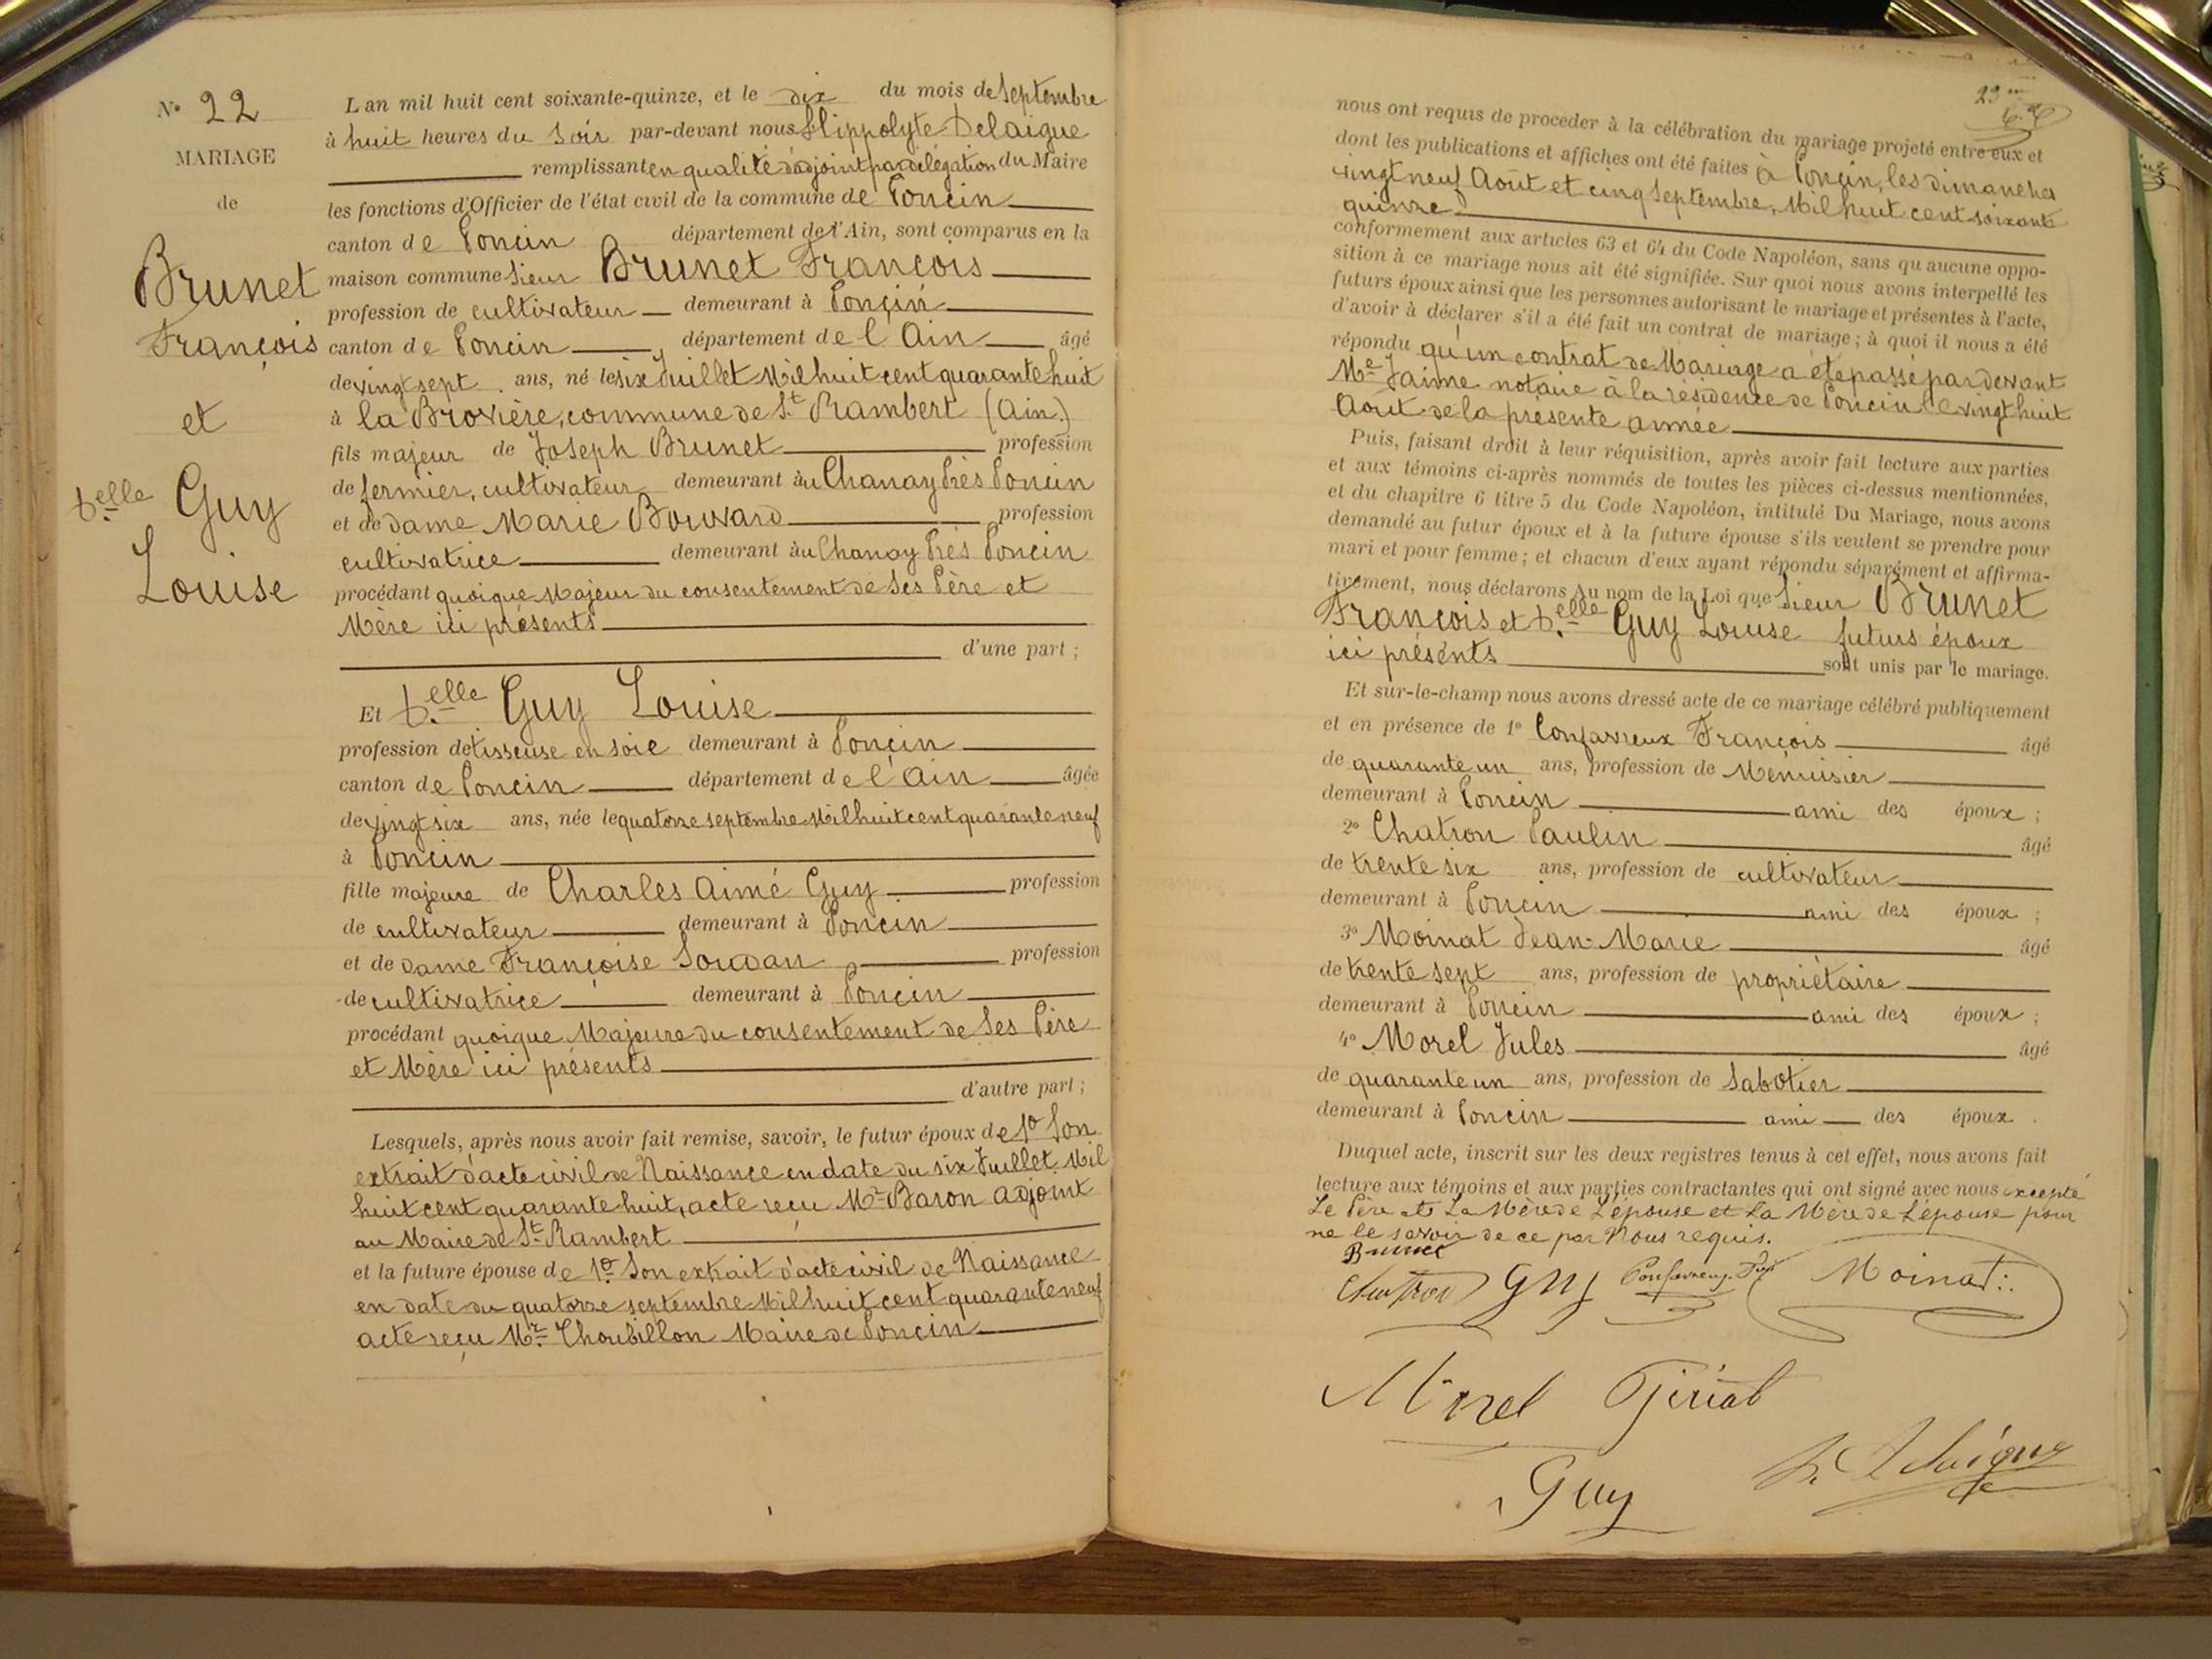 Nº 22
MARIAGE
de
Brunet
François
et
D.elle Guy
Louise
L'an mil huit cent soixante-quinze, et le dix du mois de Septembre
à huit heures du Soir par-devant nous Hippolyte Delaigue
remplissant en qualité d'adjoint par délégation du Maire
les fonctions d'Officier de l'état civil de la commune de Poncin
canton de Poncin département de l'Ain, sont comparus en la
maison commune Sieur Brunet François
profession de cultivateur demeurant à Poncin
canton de Poncin, département de l'Ain âgé
de vingt sept ans, né le six Juillet Mil huit cent quarante huit
à la Brovière, commune de St. Rambert (Ain.)
fils majeur de Joseph Brunet profession
de fermier, cultivateur demeurant au Chanay Près Poncin
et de dame Marie Bouvard profession
cultivatrice demeurant au Chanay Près Poncin
procédant quoique Majeur du consentement de Ses Père et
Mère ici présents
d'une part ;
Et D.elle Guy Louise
profession de tisseuse en soie demeurant à Poncin
canton de Poncin département de l'Ain âgée
de vingt six ans, née le quatorze septembre Mil huit cent quarante neuf
à Poncin
fille majeure de Charles Aimé Guy profession
de cultivateur demeurant à Poncin
et de dame Françoise Soudan profession
de cultivatrice demeurant à Poncin
procédant quoique Majeure du consentement de Ses Père
et Mère ici présents
d'autre part ;
Lesquels, après nous avoir fait remise, savoir, le futur époux de 1º Son
extrait d'acte civil de Naissance en date du six Juillet Mil
huit cent quarante huit, acte reçu Mr. Baron adjoint
au Maire de St. Rambert
et la future épouse de 1º Son extrait d'acte civil de Naissance
en date du quatorze septembre Mil huit cent quarante neuf
acte reçu Mr. Choubillon Maire de Poncin
23
nous ont requis de procéder à la célébration du mariage projeté entre eux et
dont les publications et affiches ont été faites à Poncin, les dimanches
vingt neuf Août et cinq Septembre, Mil huit cent soixante
quinze
conformément aux articles 63 et 64 du Code Napoléon, sans qu'aucune oppo-
sition à ce mariage nous ait été signifiée. Sur quoi nous avons interpellé les
futurs époux ainsi que les personnes autorisant le mariage et présentes à l'acte,
d'avoir à déclarer s'il a été fait un contrat de mariage ; à quoi il nous a été
répondu qu'un contrat de Mariage a été passé par devant
Me. Jaime notaire à la résidence de Poncin le vingt huit
Août de la présente année
Puis, faisant droit à leur réquisition, après avoir fait lecture aux parties
et aux témoins ci-après nommés de toutes les pièces ci-dessus mentionnées,
et du chapitre 6 titre 5 du Code Napoléon, intitulé Du Mariage, nous avons
demandé au futur époux et à la future épouse s'ils veulent se prendre pour
mari et pour femme ; et chacun d'eux ayant répondu séparément et affirma-
tivement, nous déclarons au nom de la Loi que Sieur Brunet
François et D.elle Guy Louise futurs époux
ici présents sont unis par le mariage.
Et sur-le-champ nous avons dressé acte de ce mariage célébré publiquement
et en présence de 1º Confavreux François âgé
de quarante un ans, profession de Menuisier
demeurant à Poncin ami des époux ;
2º Chatron Paulin âgé
de trente six ans, profession de cultivateur
demeurant à Poncin ami des époux ;
3º Moinat Jean-Marie âgé
de trente sept ans, profession de propriétaire
demeurant à Poncin ami des époux ;
4º Morel Jules âgé
de quarante un ans, profession de Sabotier
demeurant à Poncin ami des époux.
Duquel acte, inscrit sur les deux registres tenus à cet effet, nous avons fait
lecture aux témoins et aux parties contractantes qui ont signé avec nous excepté
Le Père et La Mère de L'épouse et La Mère de L'épouse pour
ne le savoir de ce par Nous requis.
Brunet
Chatron Guy Confavreux Moinat
Morel Giriat
Guy